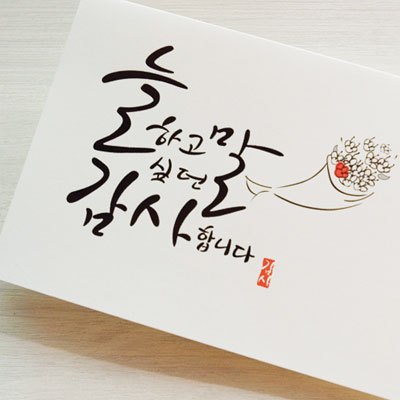 늘 하고 싶던 말
감사합니다
감사